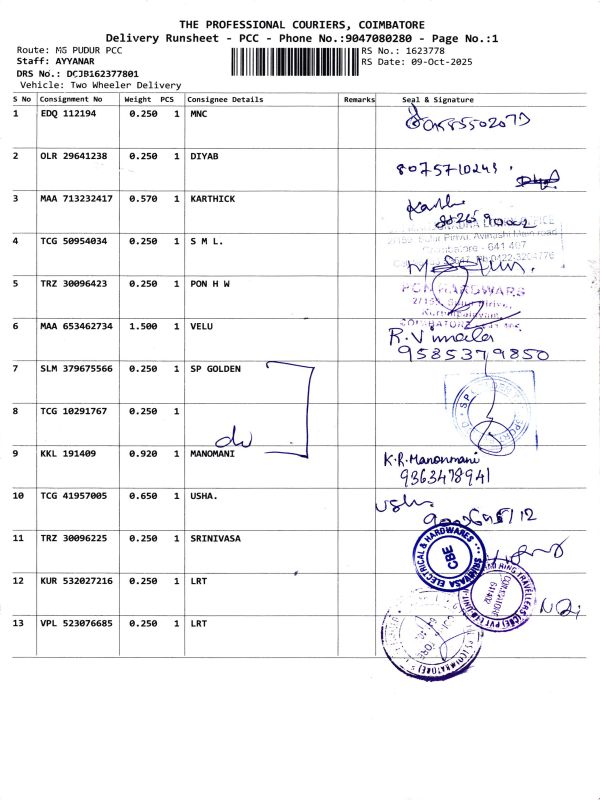 THE PROFESSIONAL COURIERS, COIMBATORE
Delivery Runsheet - PCC - Phone No.:9047080280 - Page No.:1
Route: MG PUDUR PCC RS No.: 1623778
Staff: AYYANAR RS Date: 09-Oct-2025
DRS No.: DCJB162377801
Vehicle: Two Wheeler Delivery
S No Consignment No Weight PCS Consignee Details Remarks Seal & Signature
1 EDQ 112194 0.250 1 MNC
2 OLR 29641238 0.250 1 DIYAB
8075710243
3 MAA 713232417 0.570 1 KARTHICK
4 TCG 50954034 0.250 1 S M L.
5 TRZ 30096423 0.250 1 PON H W
PON HARDWARS
6 MAA 653462734 1.500 1 VELU
R. Vimala
9585379850
7 SLM 379675566 0.250 1 SP GOLDEN
8 TCG 10291767 0.250 1
9 KKL 191409 0.920 1 MANOMANI
K.R. Manonmani
9363478941
10 TCG 41957005 0.650 1 USHA.
Usha
11 TRZ 30096225 0.250 1 SRINIVASA
SRINIVASA ELECTRICAL & HARDWARES
CBE
12 KUR 532027216 0.250 1 LRT
13 VPL 523076685 0.250 1 LRT